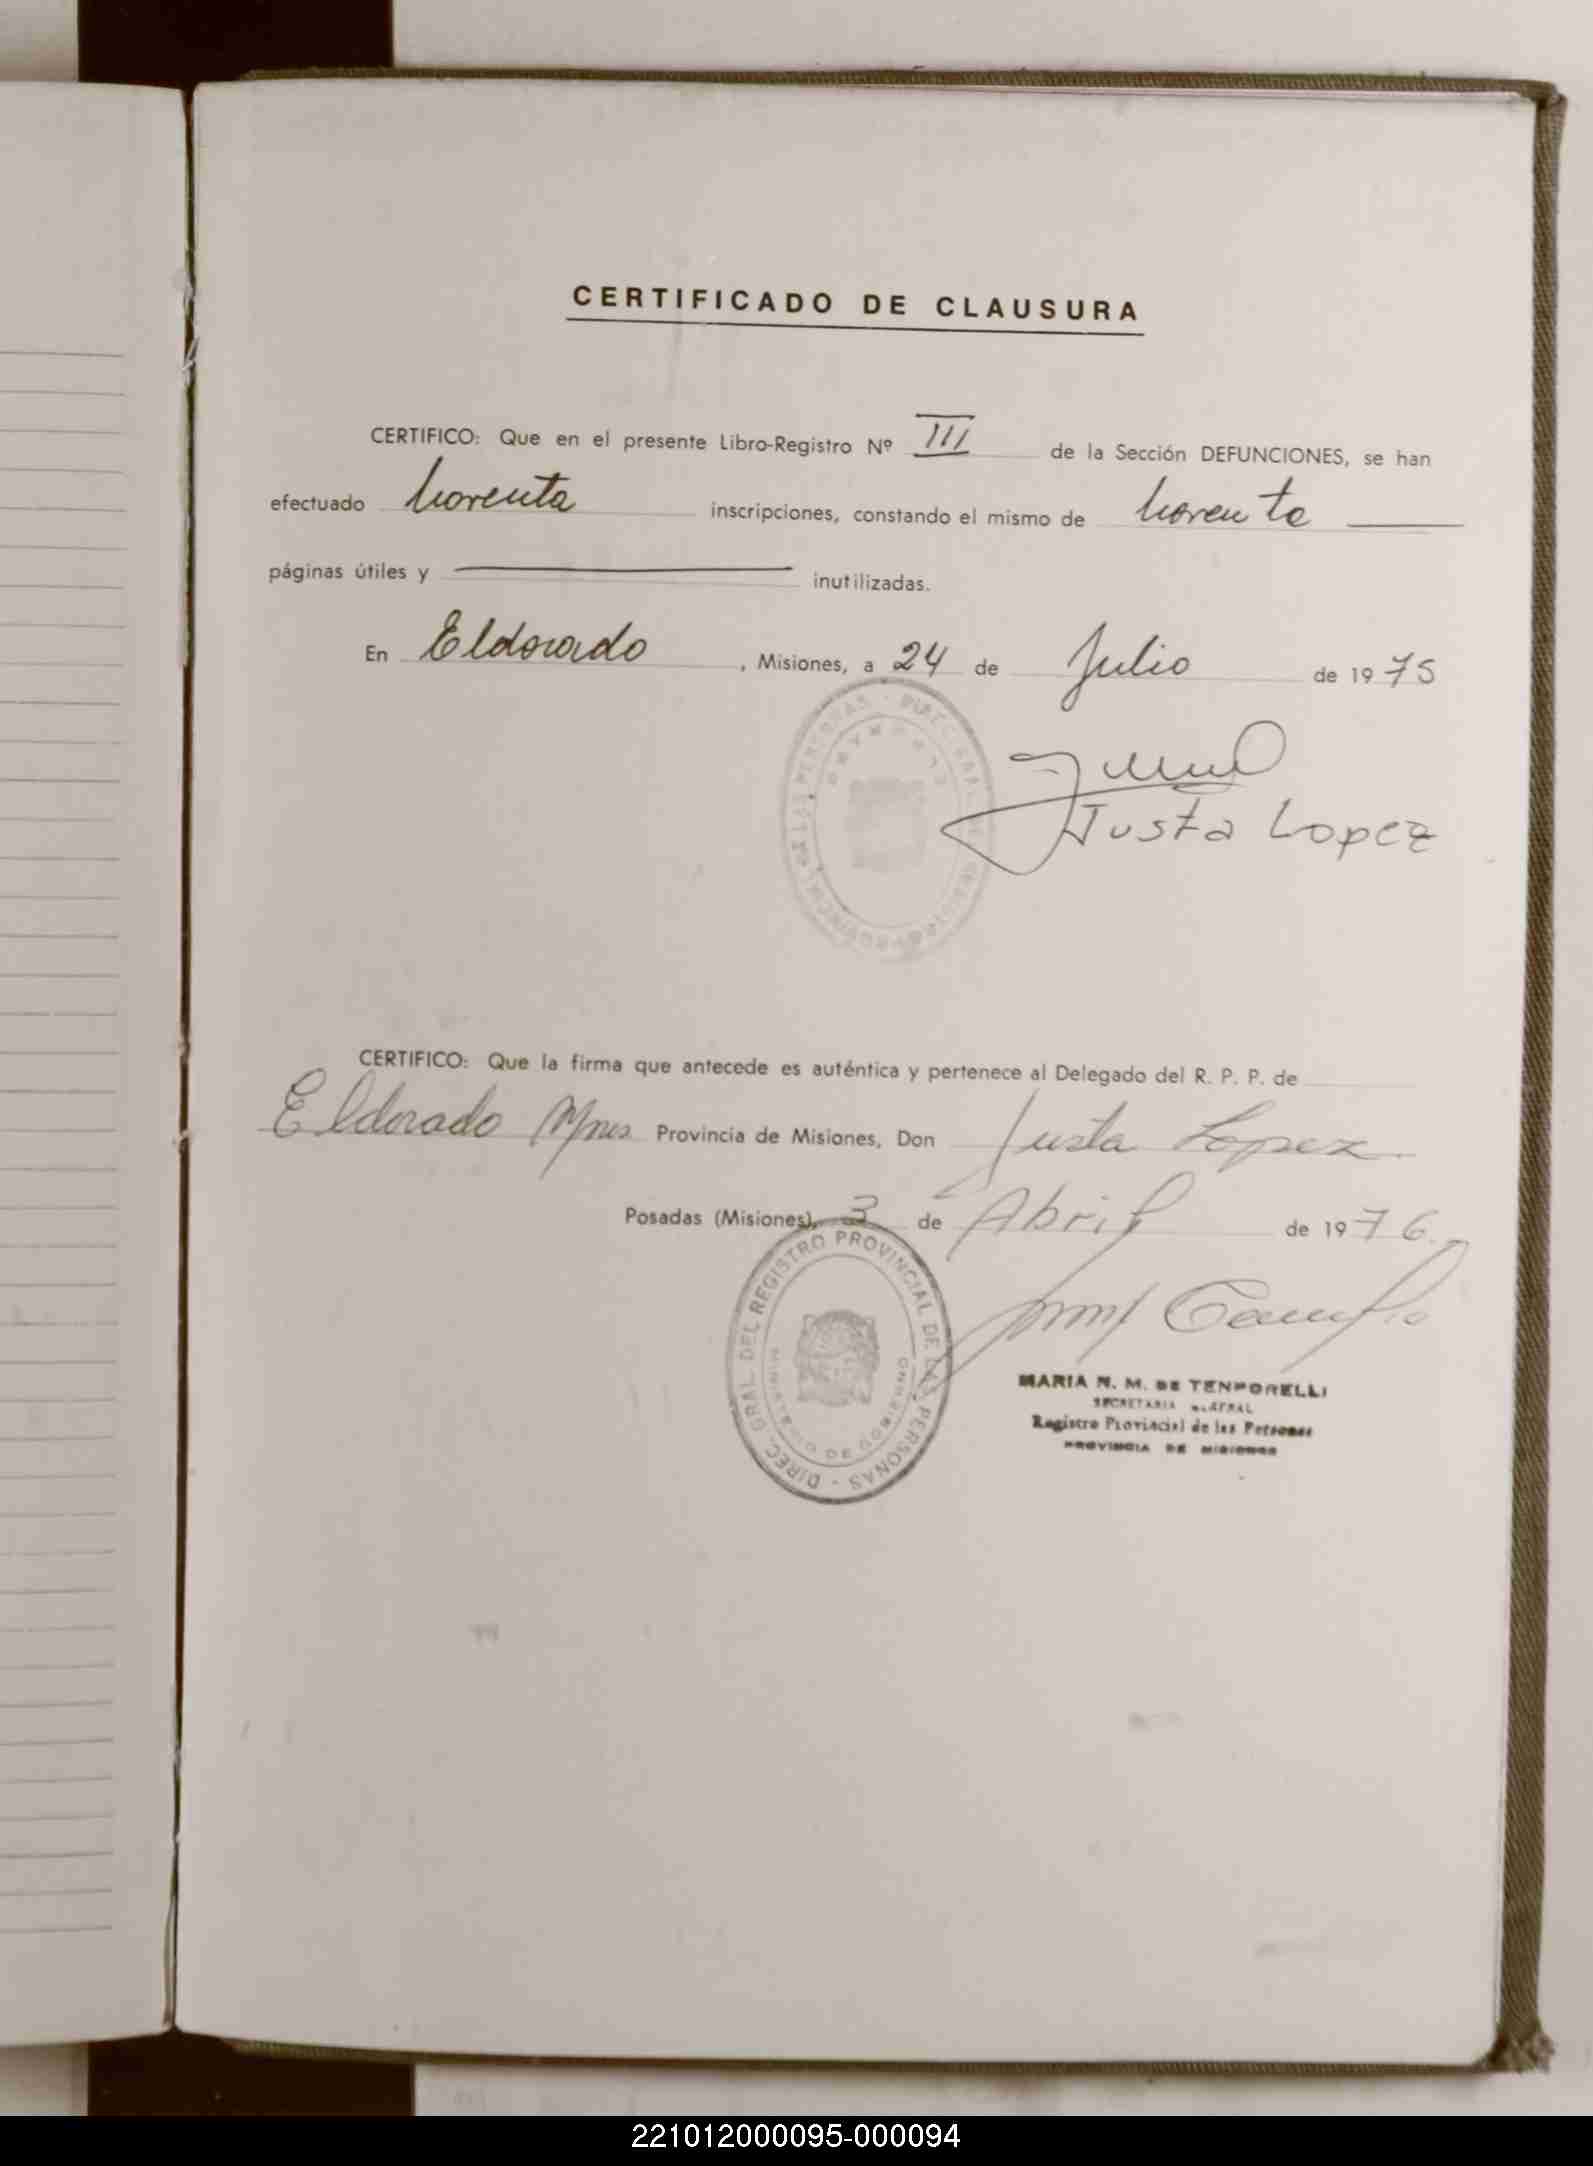 CERTIFICADO DE CLAUSURA
CERTIFICO: Que en el presente Libro-Registro Nº III de la Sección DEFUNCIONES, se han
efectuado inscripciones, constando el mismo de
páginas útiles y inutilizadas.
En Eldorado, Misiones, a 24 de Julio de 1975
Justa Lopez
CERTIFICO: Que la firma que antecede es auténtica y pertenece al Delegado del R. P. P. de
Eldorado Mnes Provincia de Misiones, Don Justa Lopez.
Posadas (Misiones), 3 de Abril de 1976.
DIREC. GRAL. DEL REGISTRO PROVINCIAL DE LAS PERSONAS -
MINISTERIO DE GOBIERNO
MARIA N. M. DE TEMPORELLI
SECRETARIA GENERAL
Registro Provincial de las Personas
PROVINCIA DE MISIONES
221012000095-000094